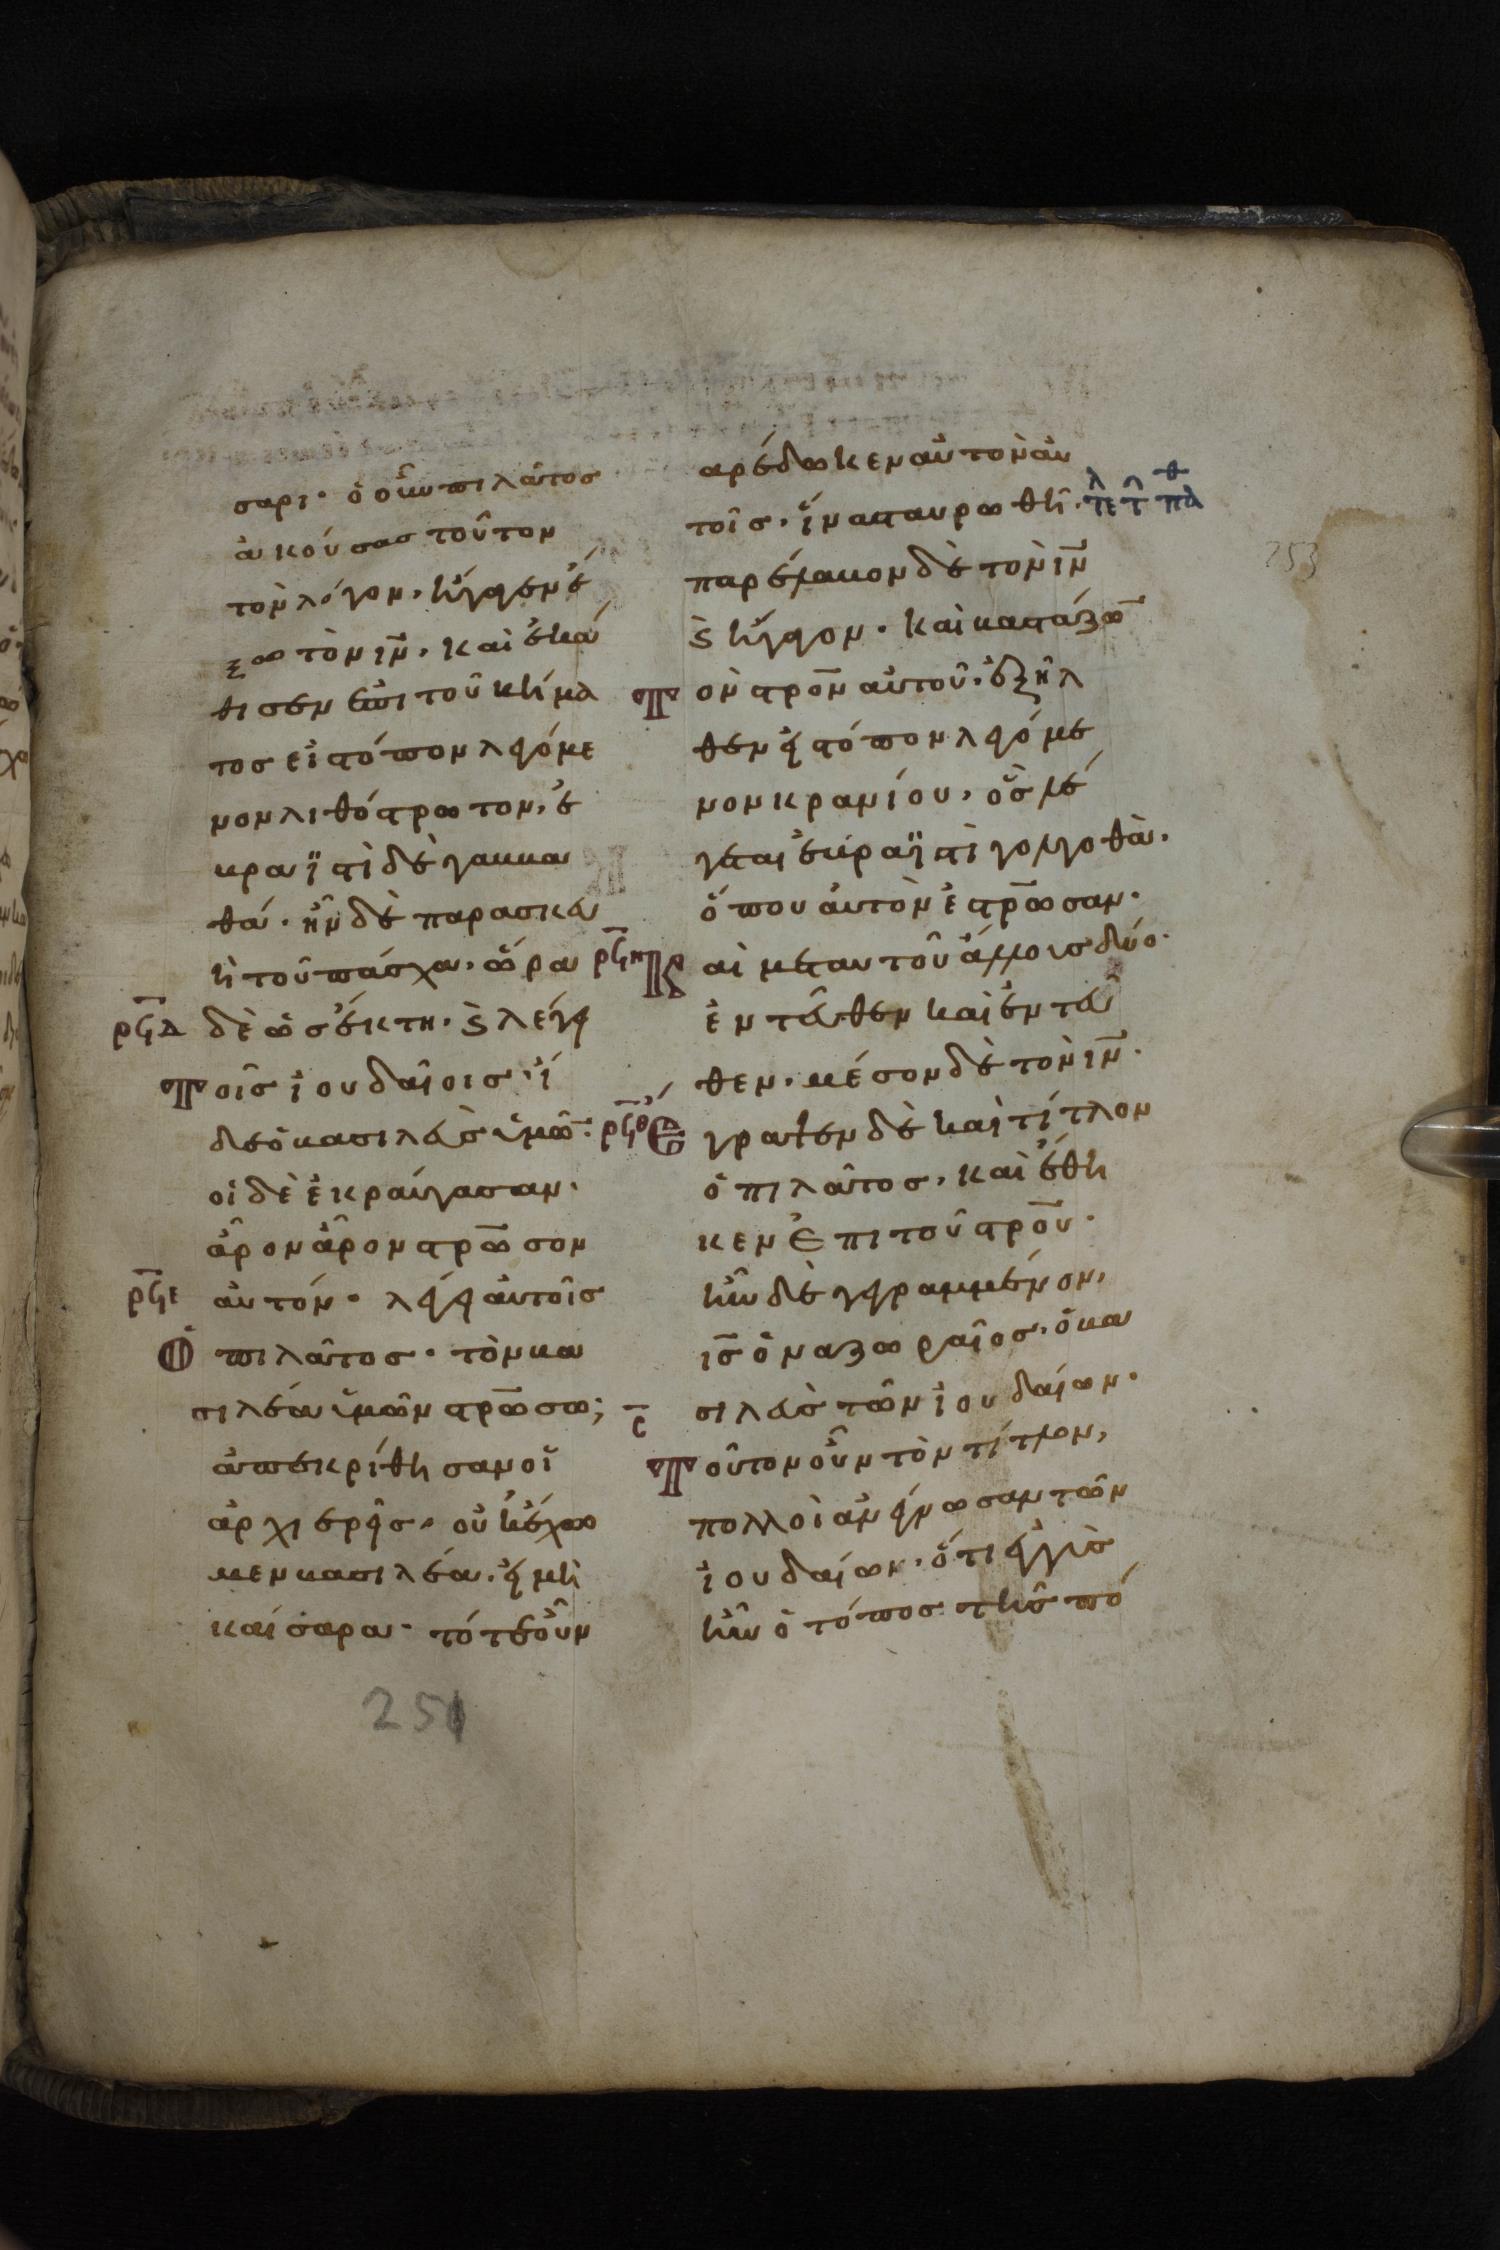 σαρι· ὁ οὖν πιλᾶτοσ
ἀκούσασ τοῦτον
τὸν λόγον, ἤγαγεν ἔ
ξω τὸν ιν̅, καὶ ἐκά
θισεν ἐπι τοῦ βήμα
τοσ εἰσ τόπον λεγόμε
νον λιθόστρωτον, ἑ
βραϊστὶ δὲ γαββα
θά· ἦν δὲ παρασκευ
ὴ τοῦ πάσχα, ὥρα
ρϟδ δὲ ὡσ ἕκτη· ϗ λέγει
Τοῖσ ἰουδαίοισ, ἴ
δε ὁ βασιλεὺσ ὑμῶ̅·
οἱ δὲ ἐκραύγασαν·
ἆρον ἆρον στρω̅σον
ρϟε αὐτόν· λέγει αὐτοῖσ
Ὁ πιλᾶτοσ· τὸν βα
σιλέα ὑμῶν στρω̅σω;
ἀπεκρίθησαν οἱ
ἀρχιερεῖσ, οὐκ ἔχο
μεν βασιλέα, εἰ μὴ
καίσαρα· τότε οὖν
251
Παρέδωκεν αὐτὸν αὐ
τοῖσ, ἵνα σταυρωθῆ·
παρέλαβον δὲ τὸν ιν̅
ϗ ἤγαγον· καὶ βαστάζω̅
Τὸν στρο̅ν αὐτοῦ, ἐξῆλ
θεν εἰσ τόπον λεγόμε
νον κρανίου, ὃσ λέ
γεται ἑβραϊστὶ γολγοθὰ,
ὅπου αὐτὸν ἐστρω̅σαν·
ρϟη Καὶ μετ αυτοῦ ἄλλουσ δύο·
ἐντεῦθεν καὶ ἐντεῦ
θεν, μέσον δὲ τὸν ιν̅·
ρϟθ Ἔγραψεν δὲ καὶ τίτλον
ὁ πιλᾶτοσ, καὶ ἔθη
κεν ἐπι τοῦ στρο̅υ·
ἦν δὲ γεγραμμένον,
ισ̅ ὁ ναζωραῖοσ, ὁ βα
σιλεὺσ τῶν ἰουδαίων·
σ̅ Τοῦτον οὖν τὸν τίτλον,
πολλοὶ ἀνέγνωσαν τῶν
ἰουδαίων, ὅτι ἐγγὺσ
ἦν ὁ τόποσ τῆσ πό
253